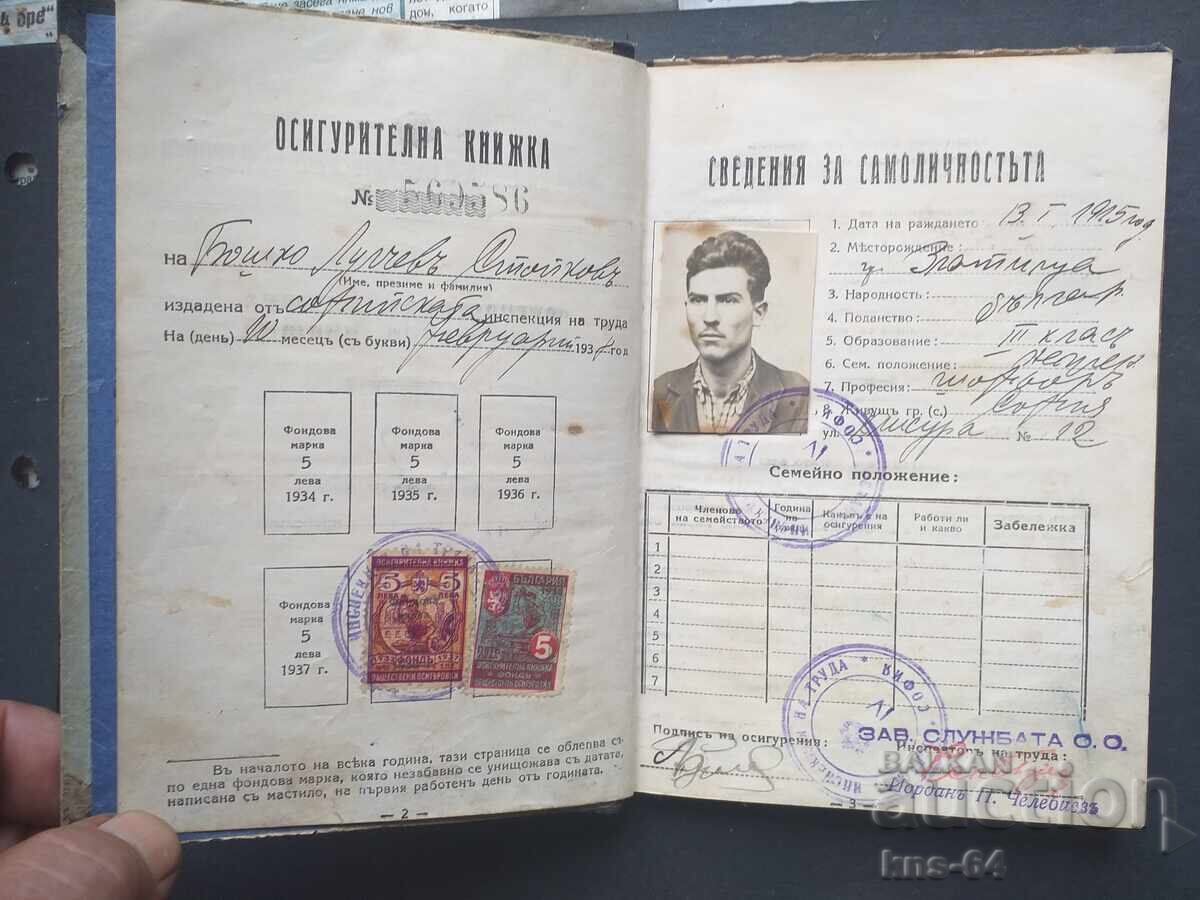 дом, когато
ОСИГУРИТЕЛНА КНИЖКА
№ 569586
На Бошко Лулчевъ Стойковъ
(Име, презиме и фамилия)
издадена отъ софийската инспекция на труда
На (день) 10 месец (съ букви) февруарий 193 год
Фондова марка 5 лева 1934 г.
Фондова марка 5 лева 1935 г.
Фондова марка 5 лева 1936 г.
Фондова марка 5 лева 1937 г.
5 ЛЕВА 5 ЛЕВА
ОСИГУРИТЕЛНА КНИЖКА
ФОНДЪ
ОБЩЕСТВЕНИ ОСИГУРОВКИ
БЪЛГАРИЯ
5
ОСИГУРИТЕЛНА КНИЖКА
ФОНДЪ
Въ началото на всѣка година, тази страница се облепва съ
по една фондова марка, която незабавно се унищожава съ датата,
написана съ мастило, на първия работенъ день отъ годината.
— 2 —
СВЕДЕНИЯ ЗА САМОЛИЧНОСТЬТА
1. Дата на раждането 13. I. 1915 год
2. Мѣсторождение:
3. Народность:
4. Поданство: българ.
5. Образование: III класъ
6. Сем. положение:
7. Професия: шофьоръ
8. Живущъ гр. (с.) София
ул. № 12
Семейно положение:
Членове на семейството
Година на
осигурения
Работи ли и какво
Забележка
1
2
3
4
5
6
7
ИНСПЕК НА ТРУДА * СОФИЯ *
Подписъ на осигурения:
ЗАВ. СЛУЖБАТА О. О.
Инспекторъ на труда:
Йорданъ П. Челебиевъ
— 3 —
BALKAN
auction
kns-64